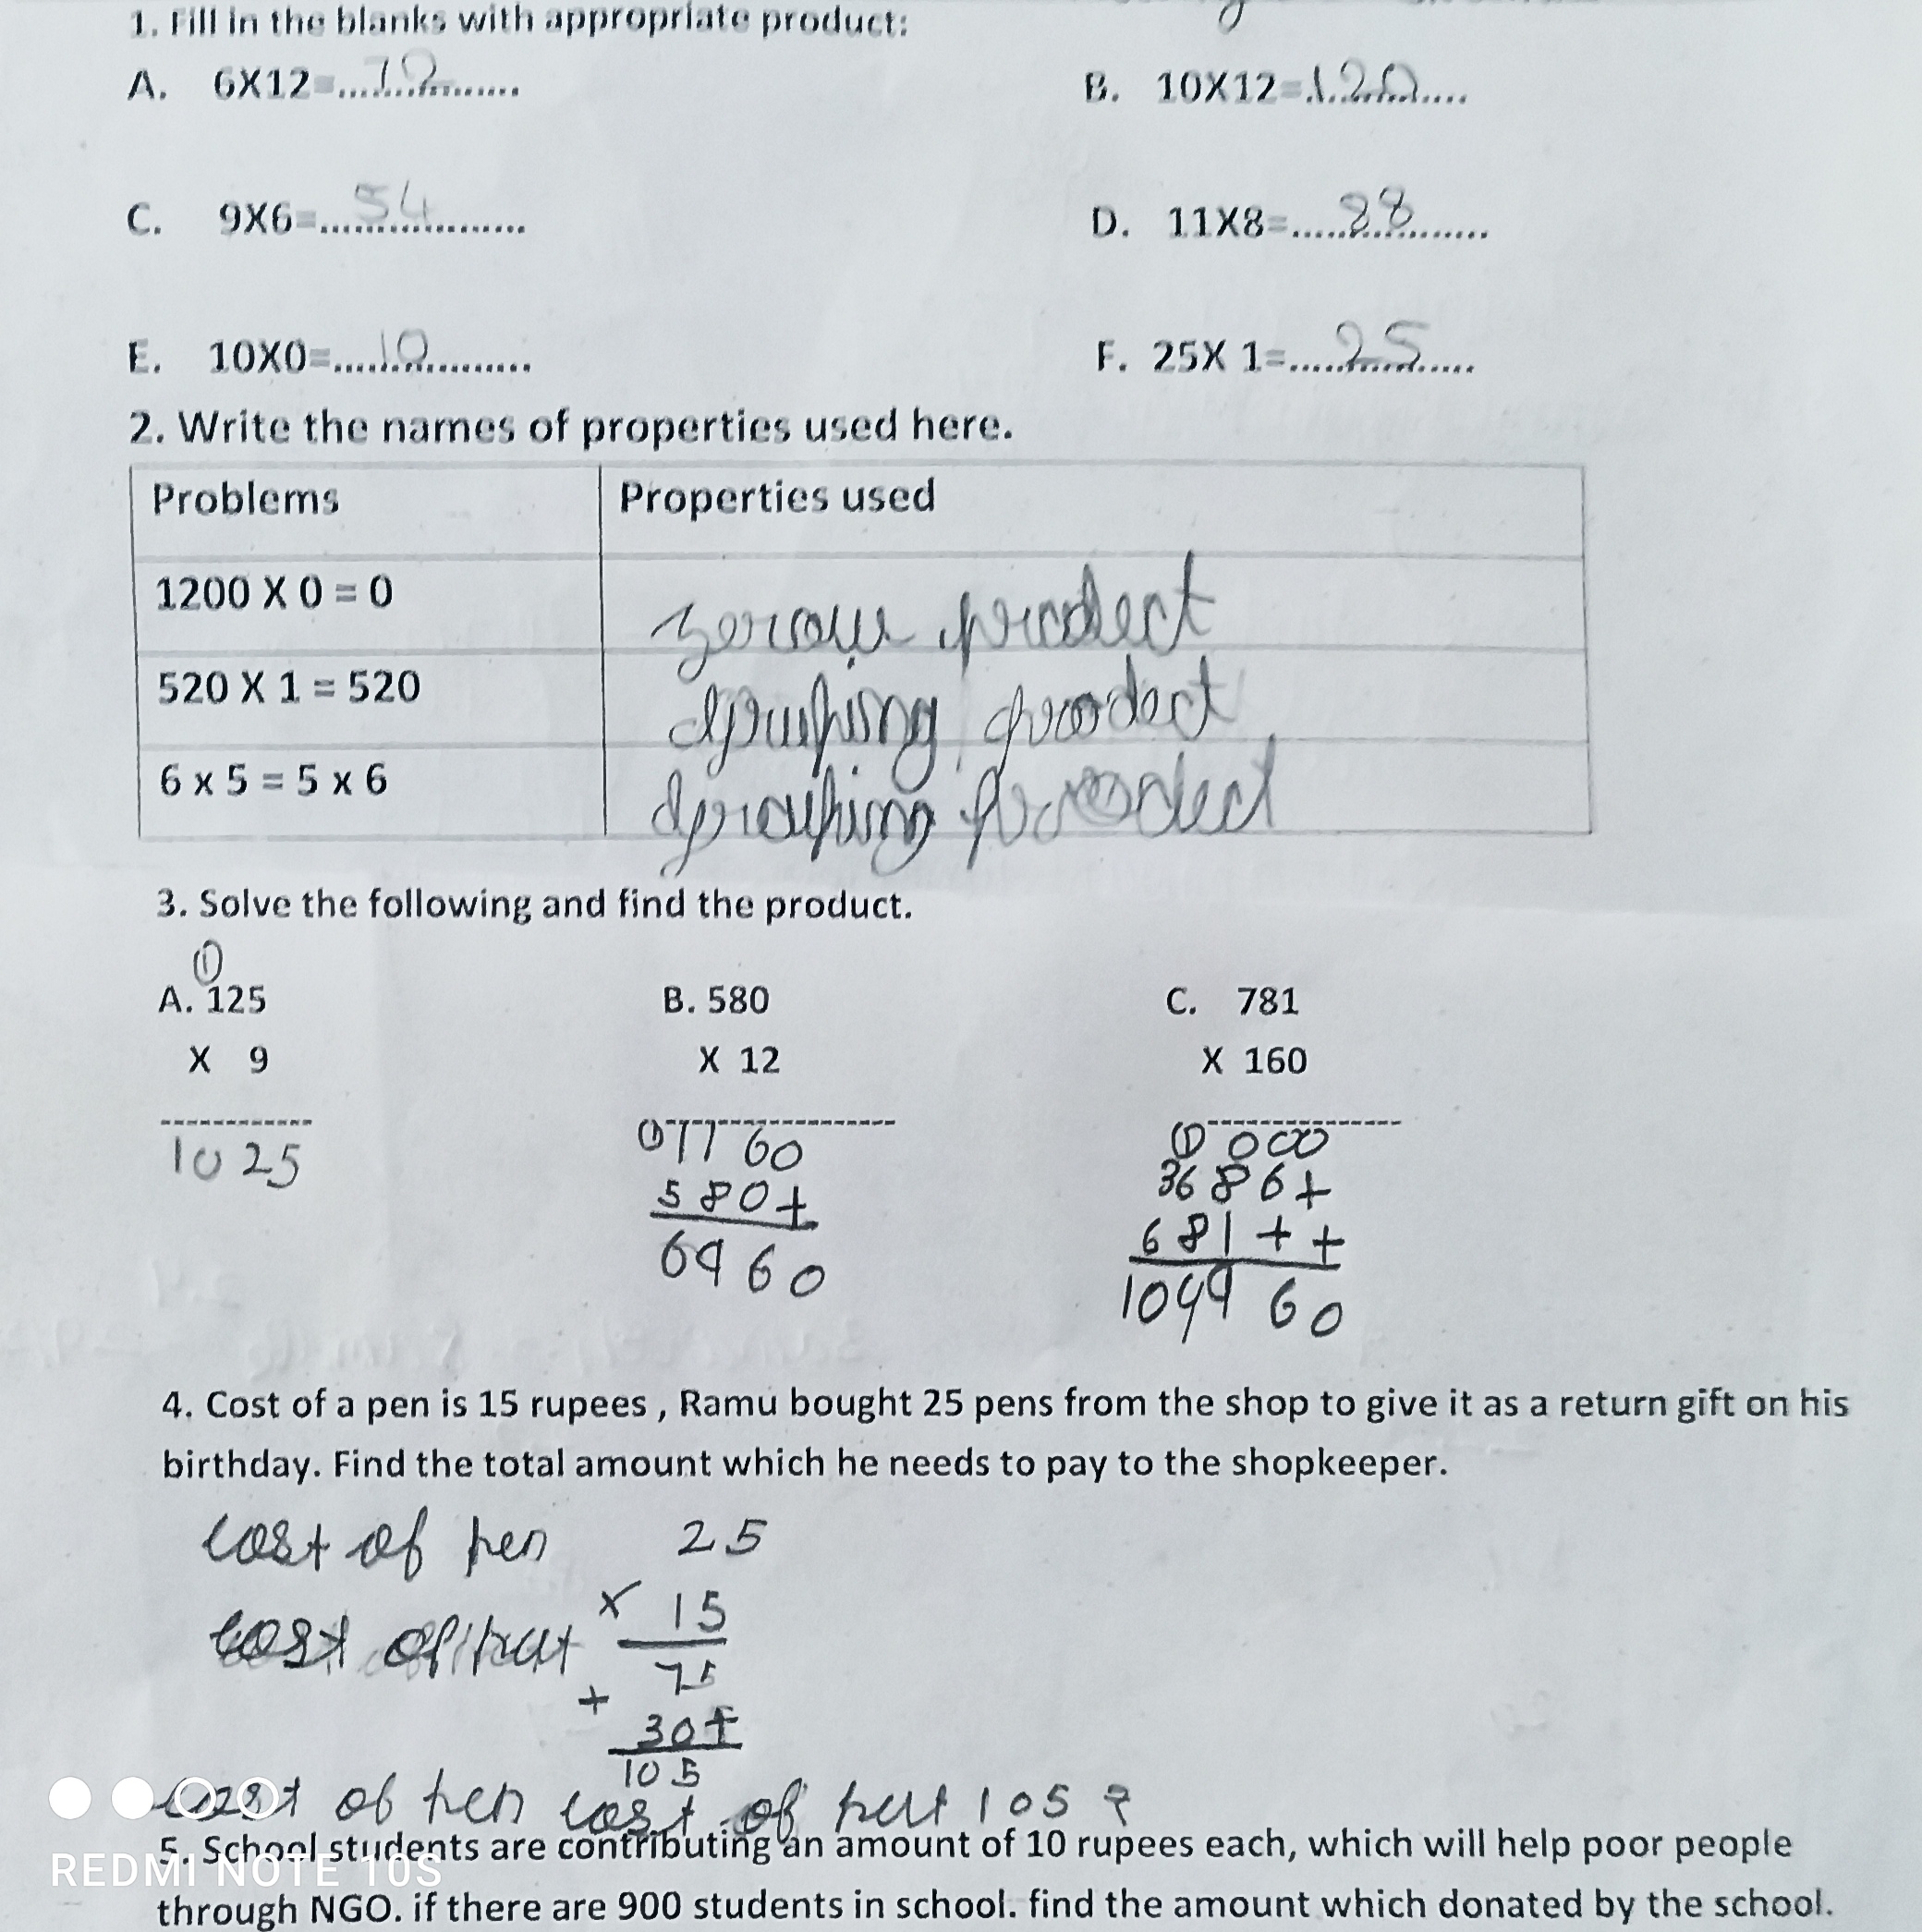 1. Fill in the blanks with appropriate product:
A. 6X12=....72.........
B. 10X12=.120....
C. 9X6=...54.........
D. 11X8=.....88.......
E. 10X0=.....10.........
F. 25X 1=.....25.....
2. Write the names of properties used here.
Problems Properties used
1200 X 0 = 0 product
520 X 1 = 520
6 x 5 = 5 x 6
3. Solve the following and find the product.
①
A. 125 B. 580 C. 781
X 9 X 12 X 160
------------ ------------------ ---------------
1025
①1160
580+
6960
① 000
36 86+
681++
104960
4. Cost of a pen is 15 rupees , Ramu bought 25 pens from the shop to give it as a return gift on his
birthday. Find the total amount which he needs to pay to the shopkeeper.
cost of pen 25
cost of x 15
75
+ 30+
105
cost of pen cost of 105 ₹
5. School students are contributing an amount of 10 rupees each, which will help poor people
through NGO. if there are 900 students in school. find the amount which donated by the school.
REDMI NOTE 10S